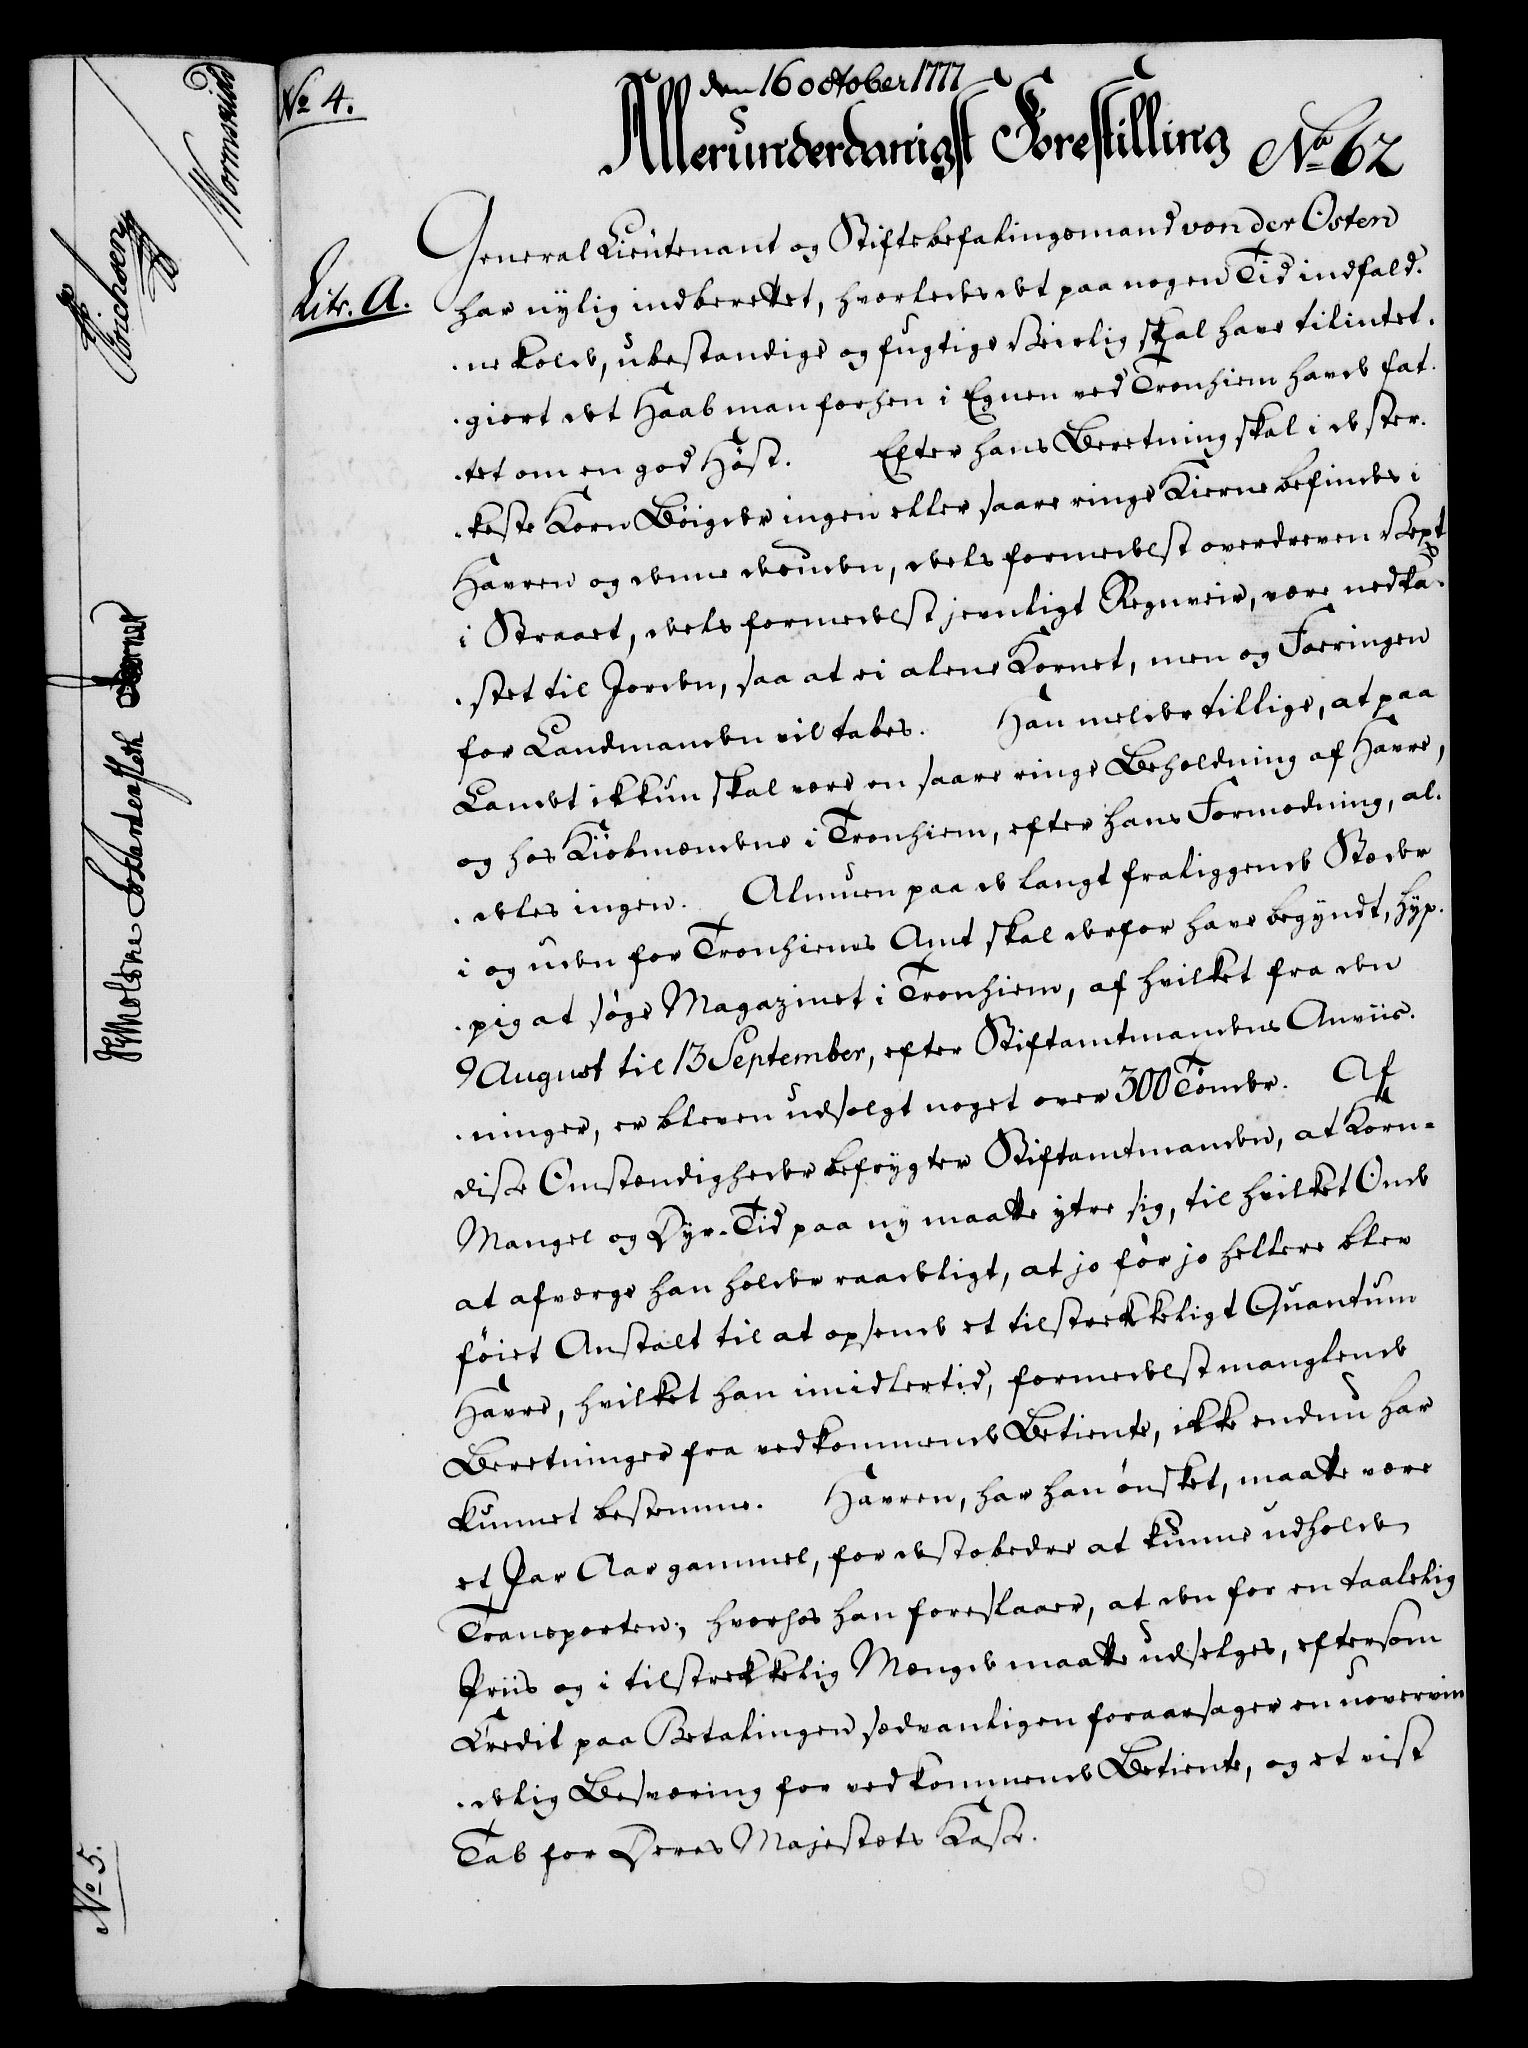 No 4.
den 16 october 1777
Allerunderdanigst Forestilling No 62
Litr. A.
General Lieutenant og Stiftsbefalingsmand von der Osten
har nylig indberettet, hvorledes det paa nogen Tid indfald-
-ne kolde, ubestandige og fugtige Veirlig skal have tilintet-
-giort det Haab man forhen i Egnen ved Tronhiem havde fat-
-tet om en god Høst. Efter hans Beretning skal i de ster-
-keste Korn Bøigder ingen eller saare ringe Kierne befindes i
Havren og denne desuden, dels formedelst overdreven Vext
i Straaet, dels formedelst jevnligt Regnveir, være nedka-
-stet til Jorden, saa at ei alene Kornet, men og Foeringen
for Landmanden vil tabes. Han melder tillige, at paa
Landet ikkun skal være en saare ringe Beholdning af Havre,
og hos Kiøbmændene i Tronhiem, efter hans Formodning, al-
-deles ingen. Almuen paa de langt fraliggende Stæder
i og uden for Tronhiems Amt skal derfor have begyndt, hyp-
-pig at søge Magazinet i Tronhiem, af hvilket fra den
9 August til 13 September, efter Stiftamtmandens Anviis-
-ninger, er bleven udsolgt noget over 300 Tønder. Af
disse Omstændigheder befrygter Stiftamtmanden, at Korn-
Mangel og Dyr-Tid paa ny maatte ytre sig, til hvilket Onde
at afværge han holder raadeligt, at jo før jo hellere blev
føiet Anstalt til at opsende et tilstrekkeligt Quantum
Havre, hvilket han imidlertid, formedelst manglende
Beretninger fra vedkommende Betiente, ikke endnu har
kunnet bestemme. Havren, har han ønsket, maatte være
et Par Aar gammel, for destobedre at kunne udholde
Transporten; hvorhos han foreslaaer, at den for en taalelig
Priis og i tilstrekkelig Mængde maatte udselges, eftersom
Credit paa Betalingen sædvanligen foraarsager en uovervin
-delig Besværing for vedkommende Betiente, og et vist
Tab for Deres Majestæts Kasse.
Wormskiold
Erichsen
No 5.